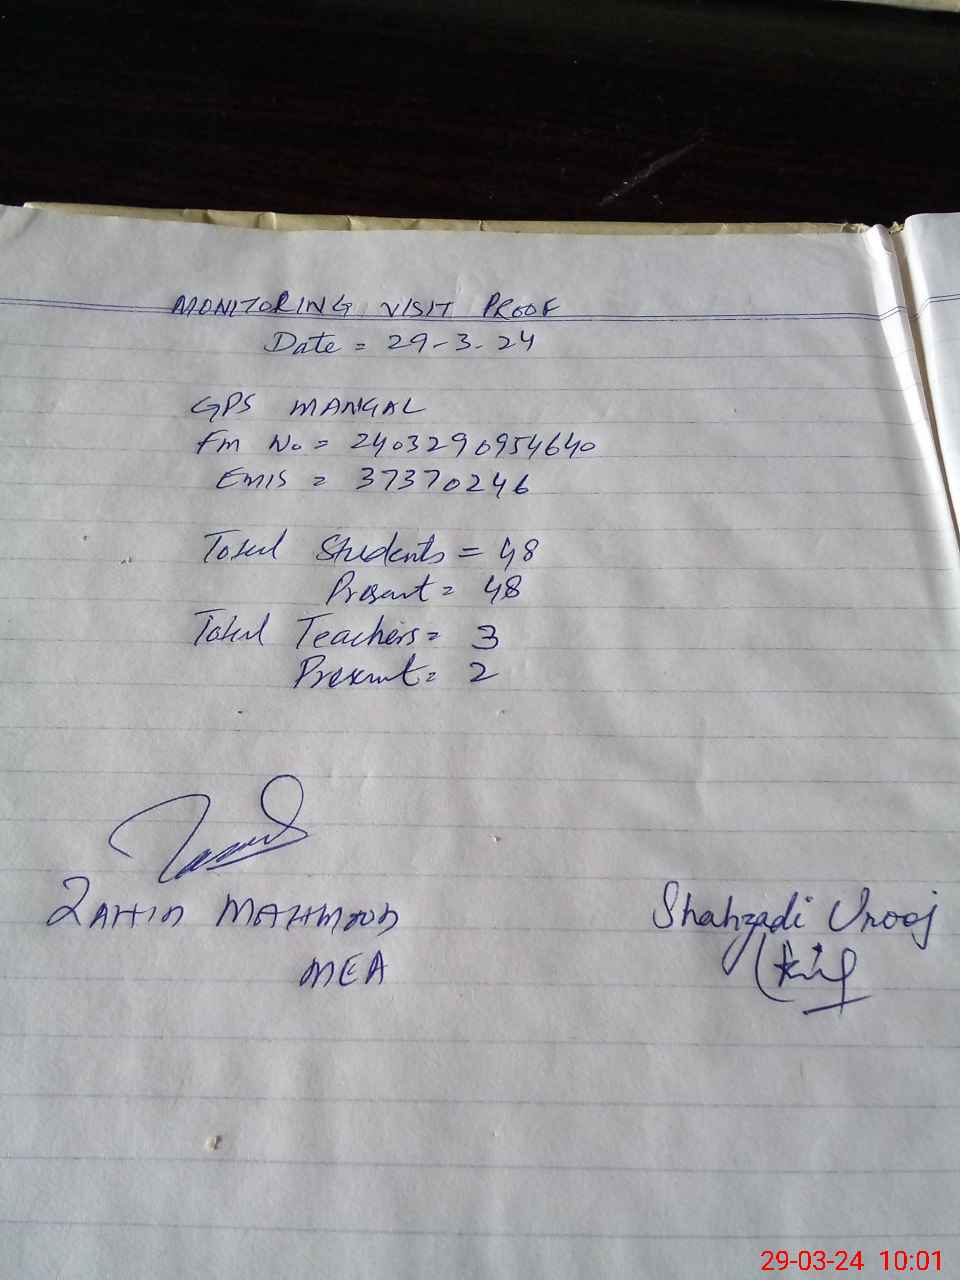 MONITORING VISIT PROOF
Date = 29-3-24
GPS MANGAL
Fm No = 2403290954640
EMIS = 37370246
Total Students = 48
Present = 48
Total Teachers = 3
Present = 2
ZAHID MAHMOOD
MEA
Shahzadi Urooj
29-03-24 10:01